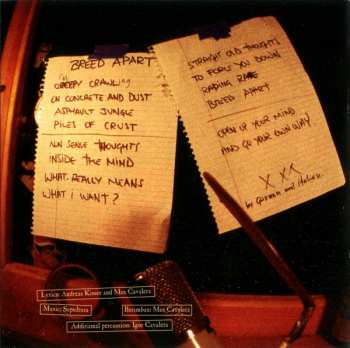 BREED APART
CREEPY CRAWLING
ON CONCRETE AND DUST
ASPHAULT JUNGLE
PILES OF CRUST
NON SENSE THOUGHTS
INSIDE THE MIND
WHAT REALLY MEANS
WHAT i WANT?
STRAIGHT OLD THOUGHTS
TO FORCE YOU DOWN
RAPING RAGE
BREED APART
OPEN UP YOUR MIND
AND GO YOUR OWN WAY
X XX
by German and italian
Lyrics: Andreas Kisser and Max Cavalera
Music: Sepultura
Berimbau: Max Cavalera
Additional percussion: Igor Cavalera